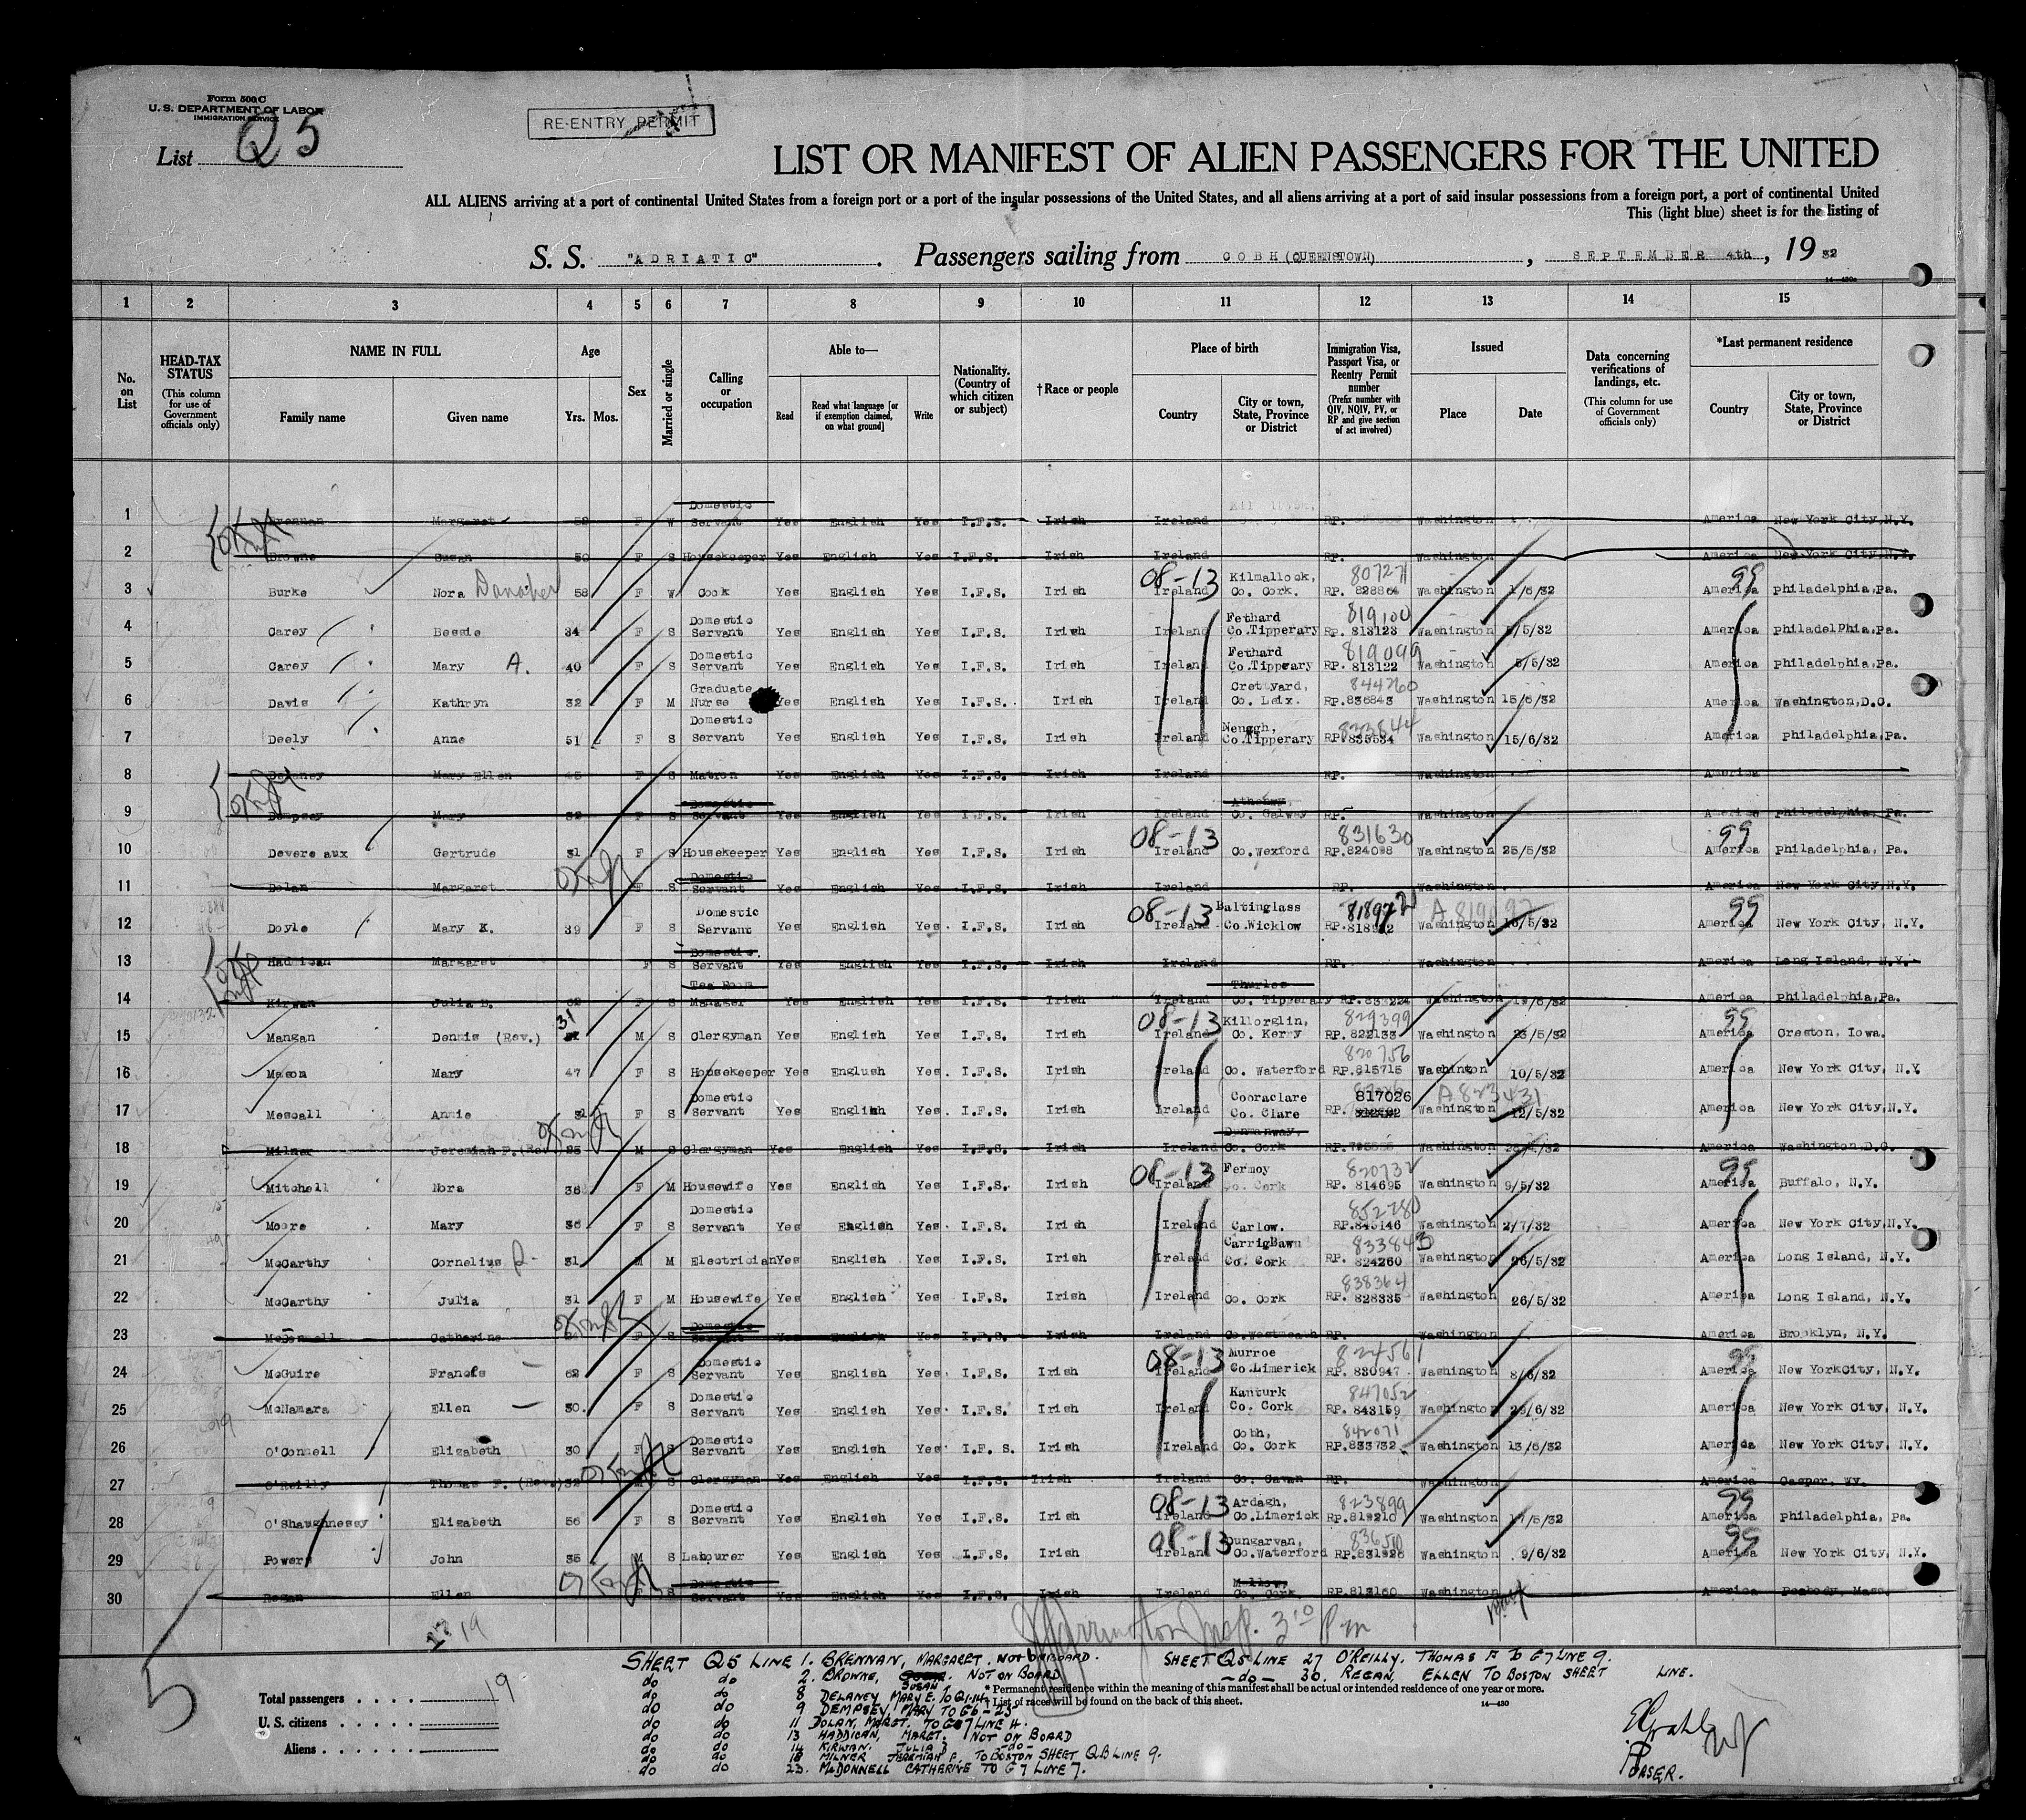 Form 500 C
U. S. DEPARTMENT OF LABOR
IMMIGRATION SERVICE
List Q 5
RE-ENTRY PERMIT
LIST OR MANIFEST OF ALIEN PASSENGERS FOR THE UNITED
ALL ALIENS arriving at a port of continental United States from a foreign port or a port of the insular possessions of the United States, and all aliens arriving at a port of said insular possessions from a foreign port, a port of continental United
This (light blue) sheet is for the listing of
S. S. "ADRIATIC". Passengers sailing from COBH (QUEENSTOWN), SEPTEMBER 4th, 19 32
14—430a
1 2 3 4 5 6 7 8 9 10 11 12 13 14 15
No. on List
HEAD-TAX STATUS (This column for use of Government officials only)
NAME IN FULL Family name Given name
Age Yrs. Mos.
Sex
Married or single
Calling or occupation
Able to— Read Read what language [or if exemption claimed, on what ground] Write
Nationality. (Country of which citizen or subject)
†Race or people
Place of birth Country City or town, State, Province or District
Immigration Visa, Passport Visa, or Reentry Permit number (Prefix number with QIV, NQIV, PV, or RP and give section of act involved)
Issued Place Date
Data concerning verifications of landings, etc. (This column for use of Government officials only)
*Last permanent residence Country City or town, State, Province or District
1 Brennan Margaret F W Domestic Servant Yes English Yes I.F.S. Irish Ireland RP. Washington America New York City, N.Y.
2 Browne Susan 50 F S Housekeeper Yes English Yes I.F.S. Irish Ireland RP. Washington America New York City, N.Y.
3 Burke Nora Danaher 58 F W Cook Yes English Yes I.F.S. Irish 08-13 Ireland Kilmallock, Co. Cork. 807271 RP. 828864 Washington 1/6/32 99 America Philadelphia, Pa.
4 Carey Bessie 34 F S Domestic Servant Yes English Yes I.F.S. Irish Ireland Fethard Co. Tipperary 819100 RP. 813123 Washington 5/5/32 America Philadelphia, Pa.
5 Carey Mary A. 40 F S Domestic Servant Yes English Yes I.F.S. Irish Ireland Fethard Co. Tippeary 819099 RP. 813122 Washington 5/5/32 America Philadelphia, Pa.
6 Davis Kathryn 32 F M Graduate Nurse Yes English Yes I.F.S. Irish Ireland Crettyard, Co. Leix. 844760 RP. 836843 Washington 15/6/32 America Washington, D.C.
7 Deely Anne 51 F S Domestic Servant Yes English Yes I.F.S. Irish Ireland Nenagh, Co. Tipperary 833844 RP. 835534 Washington 15/6/32 America Philadelphia, Pa.
8 Delaney Mary Ellen 45 F S Matron Yes English Yes I.F.S. Irish Ireland RP. Washington America
9 Dempsey Mary 32 F S Domestic Servant Yes English Yes I.F.S. Irish Ireland Athenry, Co. Galway RP. Washington America Philadelphia, Pa.
10 Devereaux Gertrude 31 F S Housekeeper Yes English Yes I.F.S. Irish 08-13 Ireland Co. Wexford 831630 RP. 824098 Washington 25/5/32 99 America Philadelphia, Pa.
11 Dolan Margaret F S Domestic Servant Yes English Yes I.F.S. Irish Ireland RP. Washington America New York City, N.Y.
12 Doyle Mary K. 39 F S Domestic Servant Yes English Yes I.F.S. Irish 08-13 Ireland Baltinglass Co. Wicklow RP. Washington 16/5/32 99 America New York City, N.Y.
13 Haddican Margaret F S Domestic Servant Yes English Yes I.F.S. Irish Ireland RP. Washington America Long Island, N.Y.
14 Kirwan Julia B. 62 F S Tea Room Manager Yes English Yes I.F.S. Irish Ireland Thurles Co. Tipperary RP. 833224 Washington 19/6/32 America Philadelphia, Pa.
15 Mangan Dennis (Rev.) 31 M S Clergyman Yes English Yes I.F.S. Irish 08-13 Ireland Killorglin, Co. Kerry 829399 RP. 822133 Washington 23/5/32 99 America Creston, Iowa.
16 Mason Mary 47 F S Housekeeper Yes Englush Yes I.F.S. Irish Ireland Co. Waterford 820756 RP. 815715 Washinton 10/5/32 America New York City, N.Y.
17 Mescall Annie 31 F S Domestic Servant Yes English Yes I.F.S. Irish Ireland Cooraclare Co. Clare 817026 RP. A823431 Washington 12/5/32 America New York City, N.Y.
18 Milner Jeremiah P. (Rev.) 25 M S Clergyman Yes English Yes I.F.S. Irish Ireland Dunmanway, Co. Cork RP. Washington America Washington, D.C.
19 Mitchell Nora 36 F M Housewife Yes English Yes I.F.S. Irish 08-13 Ireland Fermoy Co. Cork 820732 RP. 814695 Washington 9/5/32 99 America Buffalo, N.Y.
20 Moore Mary 36 F S Domestic Servant Yes English Yes I.F.S. Irish Ireland Carlow. 852780 RP. 845146 Washington 2/7/32 America New York City, N.Y.
21 McCarthy Cornelius P. 31 M M Electrician Yes English Yes I.F.S. Irish Ireland CarrigBawn Co. Cork 833843 RP. 824260 Washington 26/5/32 America Long Island, N.Y.
22 McCarthy Julia 31 F M Housewife Yes English Yes I.F.S. Irish Ireland Co. Cork 838364 RP. 828335 Washington 26/5/32 America Long Island, N.Y.
23 McDonnell Catherine F S Domestic Servant Yes English Yes I.F.S. Irish Ireland Co. Westmeath RP. Washington America Brooklyn, N.Y.
24 McGuire Francis 62 F S Domestic Servant Yes English Yes I.F.S. Irish 08-13 Ireland Murroe Co. Limerick 824561 RP. 830947 Washington 8/6/32 99 America New York City, N.Y.
25 McNamara Ellen 30 F S Domestic Servant Yes English Yes I.F.S. Irish Ireland Kanturk Co. Cork 847052 RP. 843159 Washington 25/6/32 America New York City, N.Y.
26 O'Connell Elizabeth 30 F S Domestic Servant Yes English Yes I.F.S. Irish Ireland Cobh, Co. Cork 842071 RP. 833732 Washington 13/6/32 America New York City, N.Y.
27 O'Reilly Thomas F. (Rev.) 32 M S Clergyman Yes English Yes I.F.S. Irish Ireland Co. Cavan RP. Washington America Casper, Wy.
28 O'Shaughnessy Elizabeth 56 F S Domestic Servant Yes English Yes I.F.S. Irish 08-13 Ireland Ardagh, Co. Limerick 823899 RP. 819210 Washington 17/5/32 99 America Philadelphia, Pa.
29 Powers John 35 M S Labourer Yes English Yes I.F.S. Irish 08-13 Ireland Dungarvan, Co. Waterford 836511 RP. 831926 Washington 9/6/32 99 America New York City, N.Y.
30 Regan Ellen F S Domestic Servant Yes English Yes I.F.S. Irish Ireland Mallow, Co. Cork RP. 813160 Washington America Peabody, Mass.
17 19
Insp. 3 10 Pm
SHEET Q5 LINE 1. BRENNAN, MARGARET. NOT ON BOARD.
do do 2. BROWNE, SUSAN. NOT ON BOARD
do do 8 DELANEY MARY E. TO Q1-14
do do 9 DEMPSEY, MARY TO G6-23
do do 11 DOLAN, MARGT. TO G7 LINE 4.
do do 13 HADDICAN, MARGT. NOT ON BOARD
do do 14 KIRWAN. JULIA B -do-
do do 18 MILNER JEREMIAH P. TO BOSTON SHEET QB LINE 9.
do do 23. McDONNELL CATHERINE TO G7 LINE 7.
SHEET Q5 LINE 27 O'REILLY. THOMAS F TO G7 LINE 9.
-do- 30. REGAN, ELLEN TO BOSTON SHEET LINE.
* Permanent residence within the meaning of this manifest shall be actual or intended residence of one year or more.
† List of races will be found on the back of this sheet.
14—430
5
Total passengers . . . . 19
U. S. citizens . . . . .
Aliens . . . . . .
PURSER.